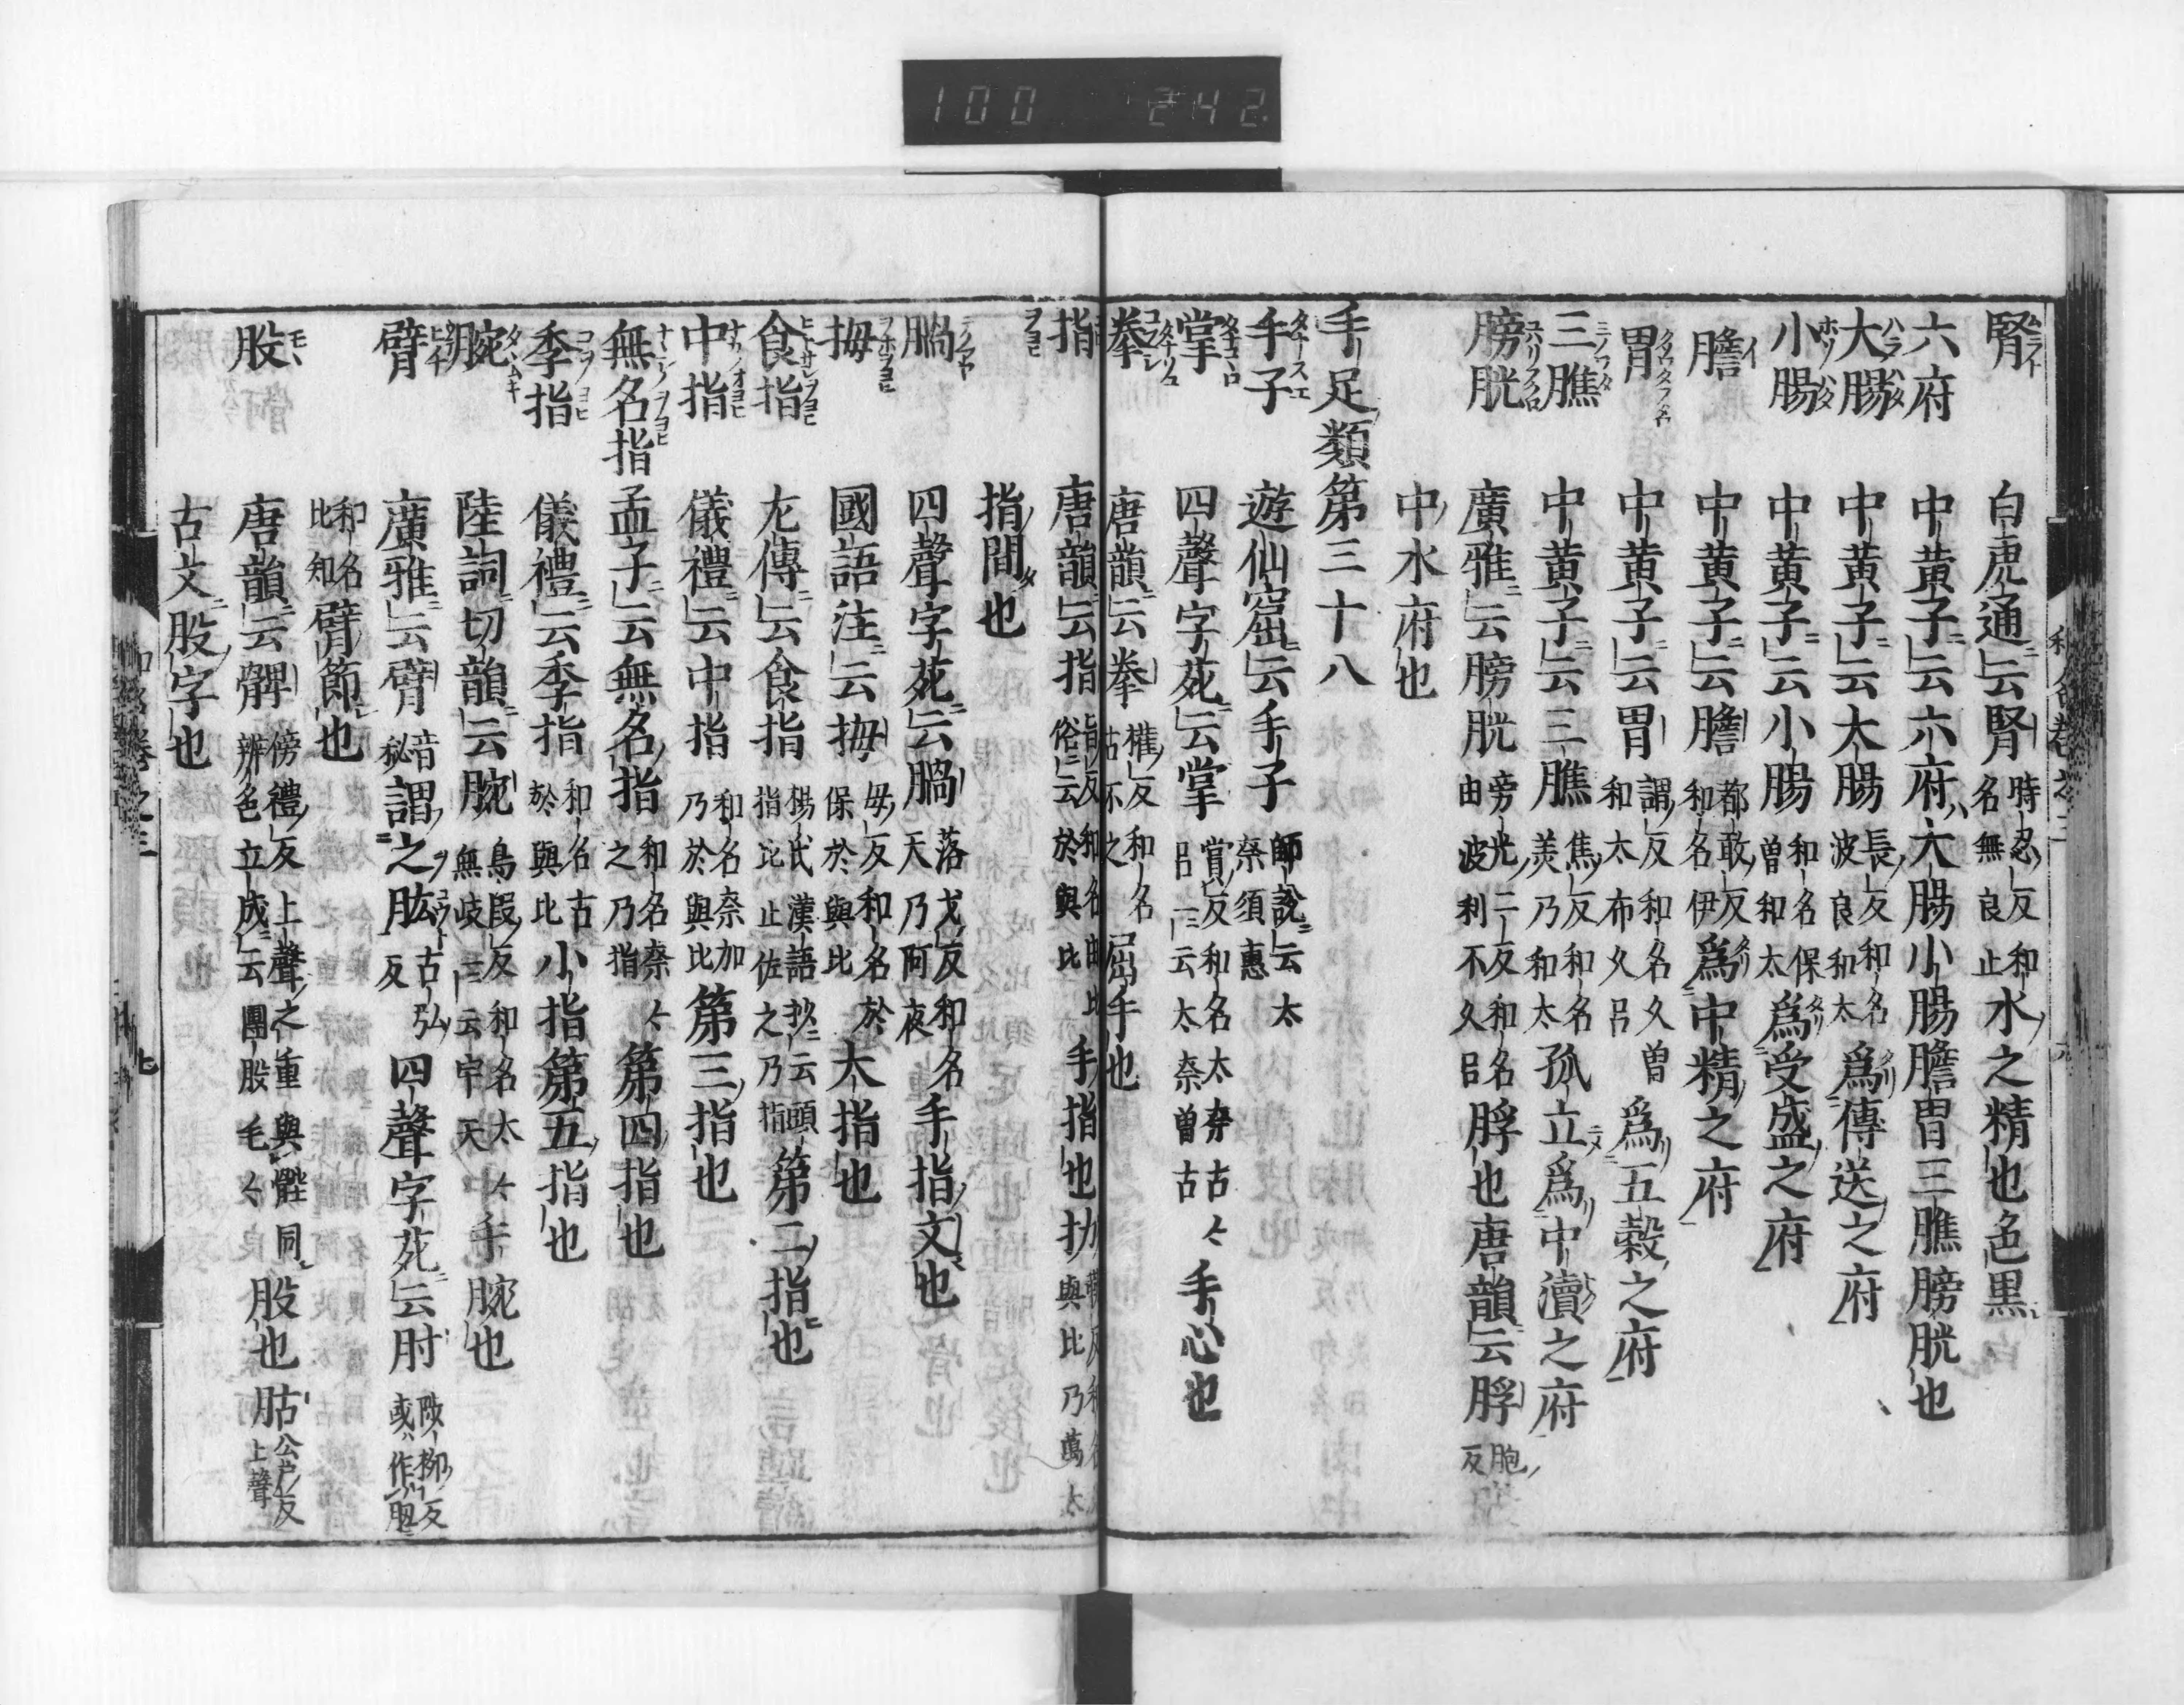 100 242
腎 白虎通云腎時忍反和名無良止水之精也色黒
六府 中黄子云六府大腸小腸膽胃三膲膀胱也
大腸 中黄子云大腸長反和名波良和太為傳送之府
小腸 中黄子云小腸和名保曾和太為受盛之府
膽 中黄子云膽都敢反和名伊為中精之府
胃 中黄子云胃謂反和名久曾和太布久呂為五穀之府
三膲 中黄子云三膲焦反和名美乃和太孤立為中瀆之府
膀胱 廣雅云膀胱旁光二反和名由波利不久呂脬也唐韻云脬胞反
中水府也
手足類第三十八
手子 遊仙窟云手子師說云太奈須惠
掌 四聲字苑云掌賞反和名太奈古々呂一云太奈曾古手心也
拳 唐韻云拳權反和名古不之屈手也
指 唐韻云指旨反和名由比俗云於與比手指也扐與比乃萬太
指間也
腡 四聲字苑云腡落戈反和名手乃阿夜手指文也
拇 國語注云拇母反和名於保於與比大指也
食指 左傳云食指楊氏漢語抄云頭指比止佐之乃指第二指也
中指 儀禮云中指和名奈加乃於與比第三指也
無名指 孟子云無名指和名奈々之乃指第四指也
季指 儀禮云季指和名古於與比小指第五指也
腕 陸詞切韻云腕烏段反和名太々無岐一云宇天手腕也
臂 廣雅云臂音秘謂之肱古弘反四聲字苑云肘陟柳反或作
和名比知臂節也
股 唐韻云髀傍禮反上聲之重與䏶同辨色立成云團股毛々股也
古文股字也